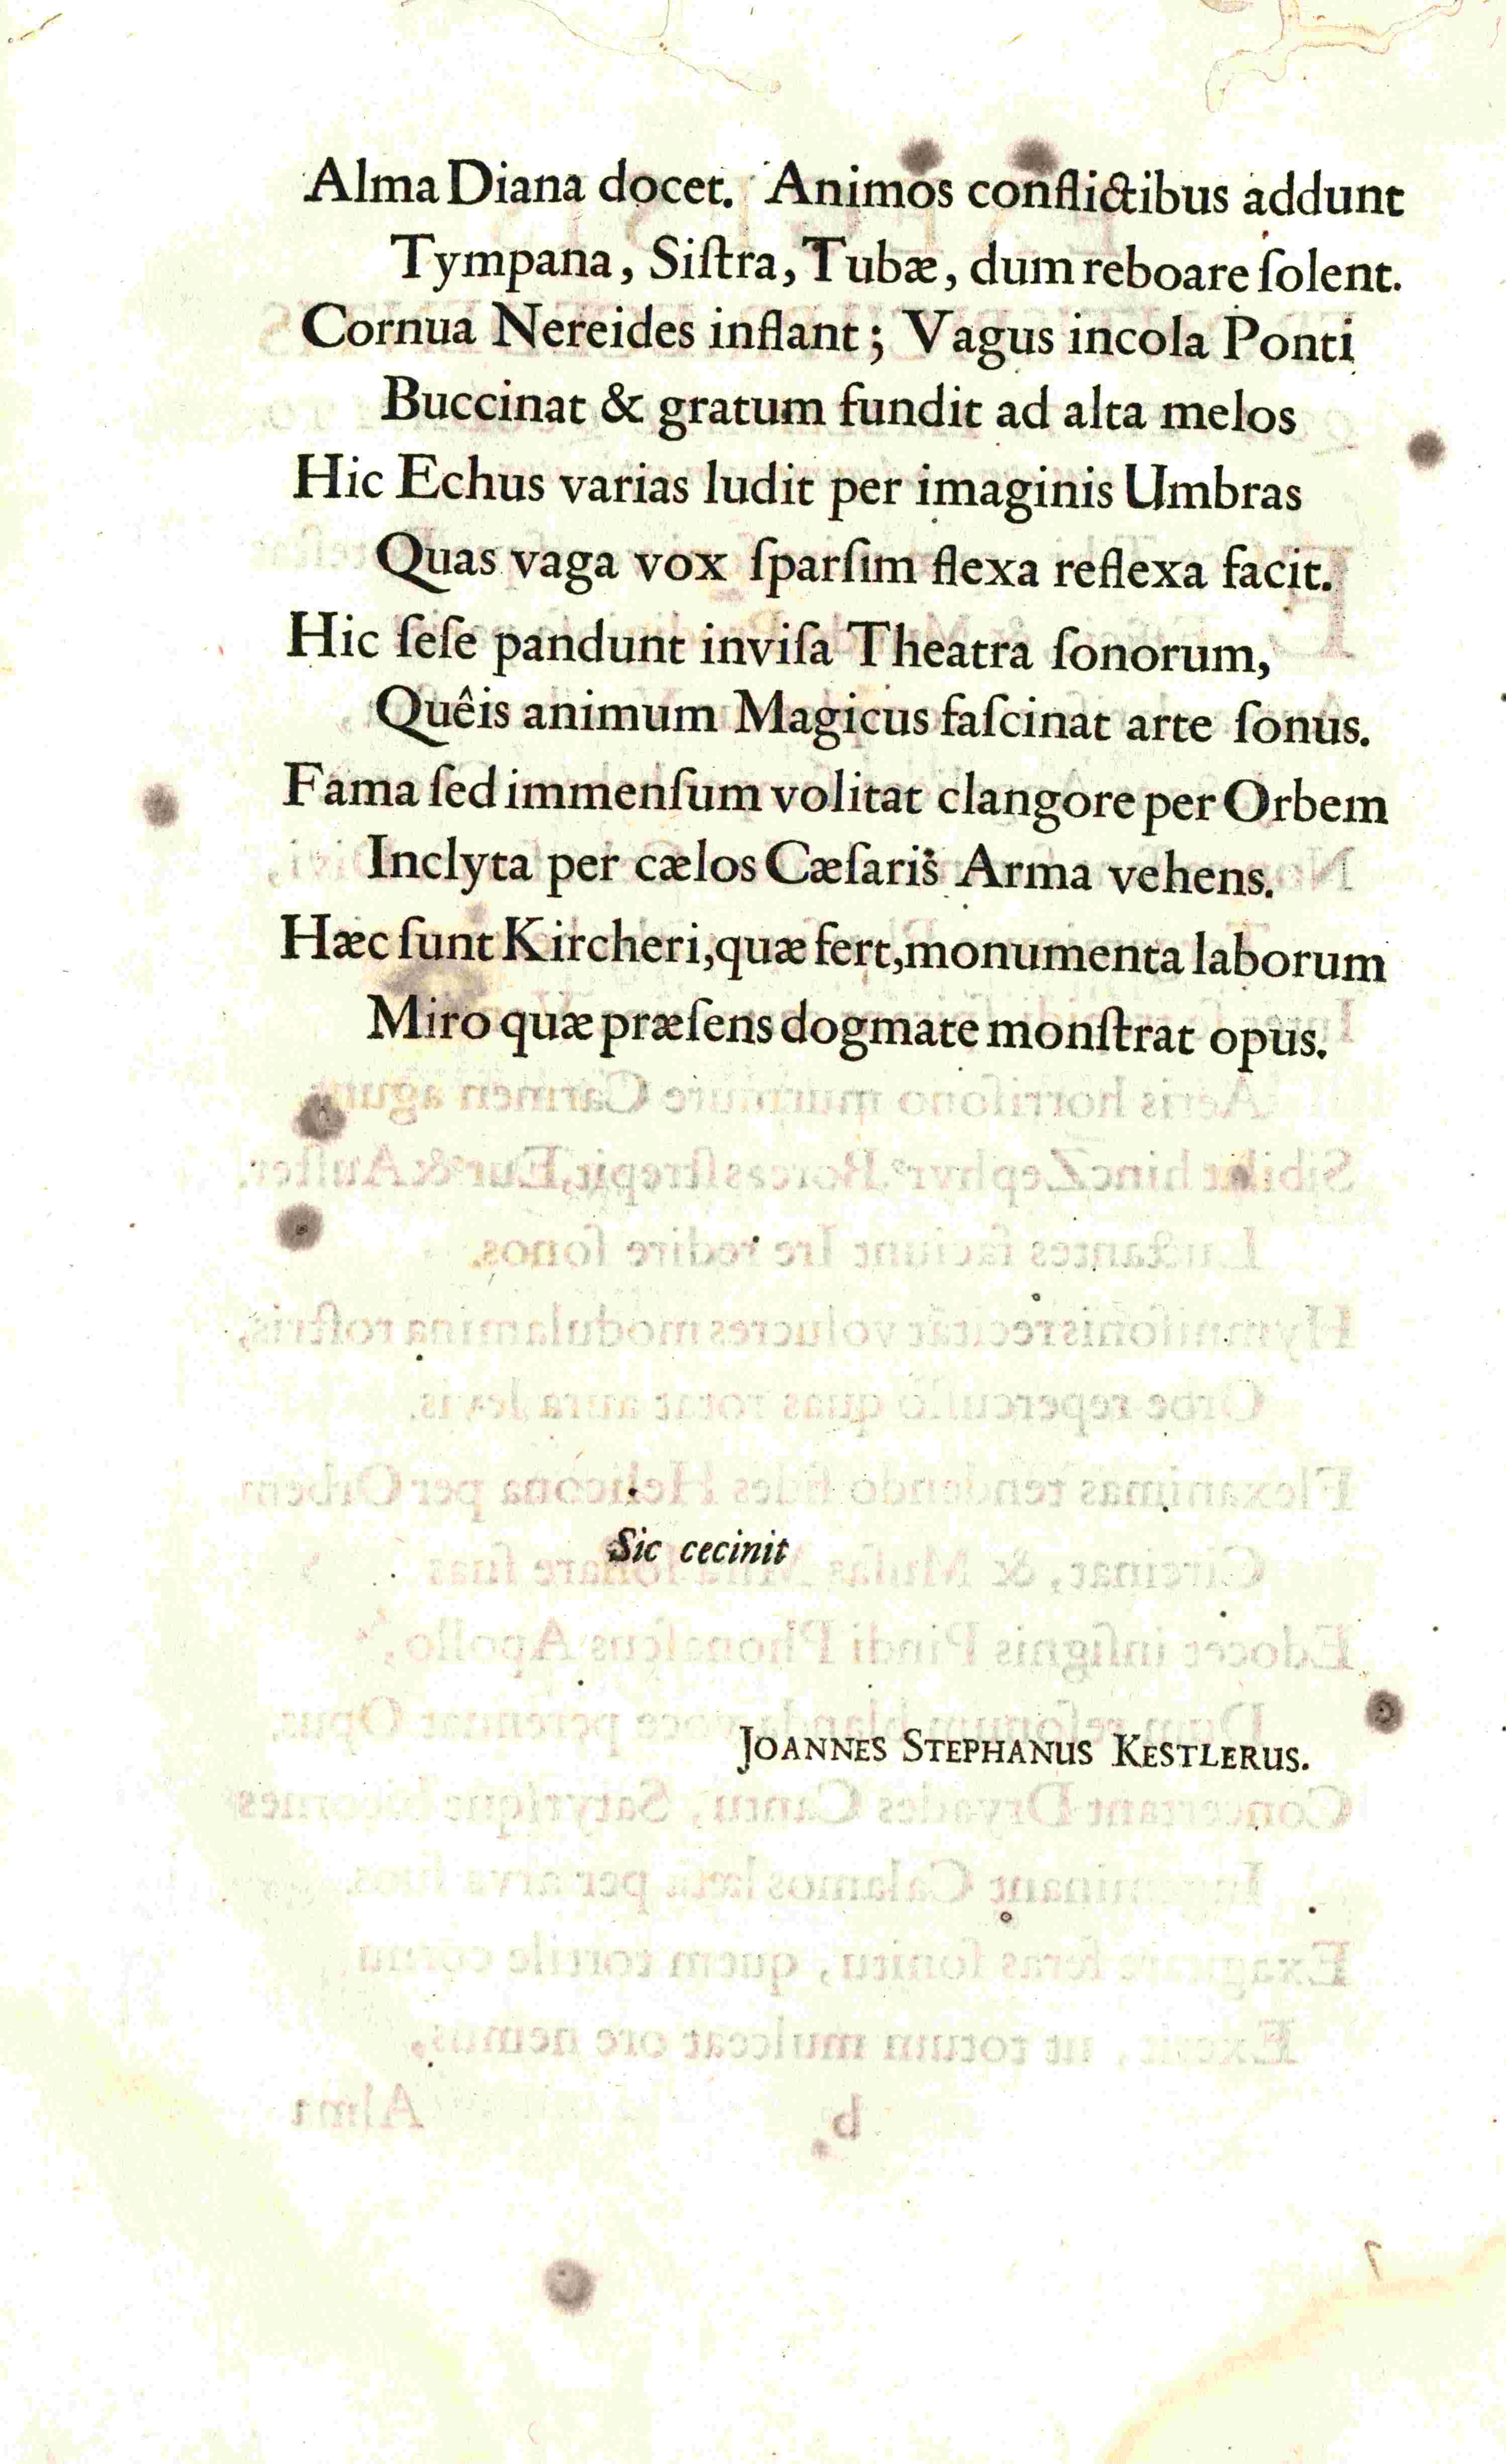 Alma Diana docet. Animos conflictibus addunt
Tympana, Siſtra, Tubæ, dum reboare ſolent.
Cornua Nereides inflant; Vagus incola Ponti
Buccinat & gratum fundit ad alta melos
Hic Echus varias ludit per imaginis Umbras
Quas vaga vox ſparſim flexa reflexa facit.
Hic ſeſe pandunt inviſa Theatra ſonorum,
Quêis animum Magicus faſcinat arte ſonus.
Fama ſed immenſum volitat clangore per Orbem
Inclyta per cælos Cæſaris Arma vehens.
Hæc ſunt Kircheri, quæ fert, monumenta laborum
Miro quæ præſens dogmate monſtrat opus.
Sic cecinit
JOANNES STEPHANUS KESTLERUS.